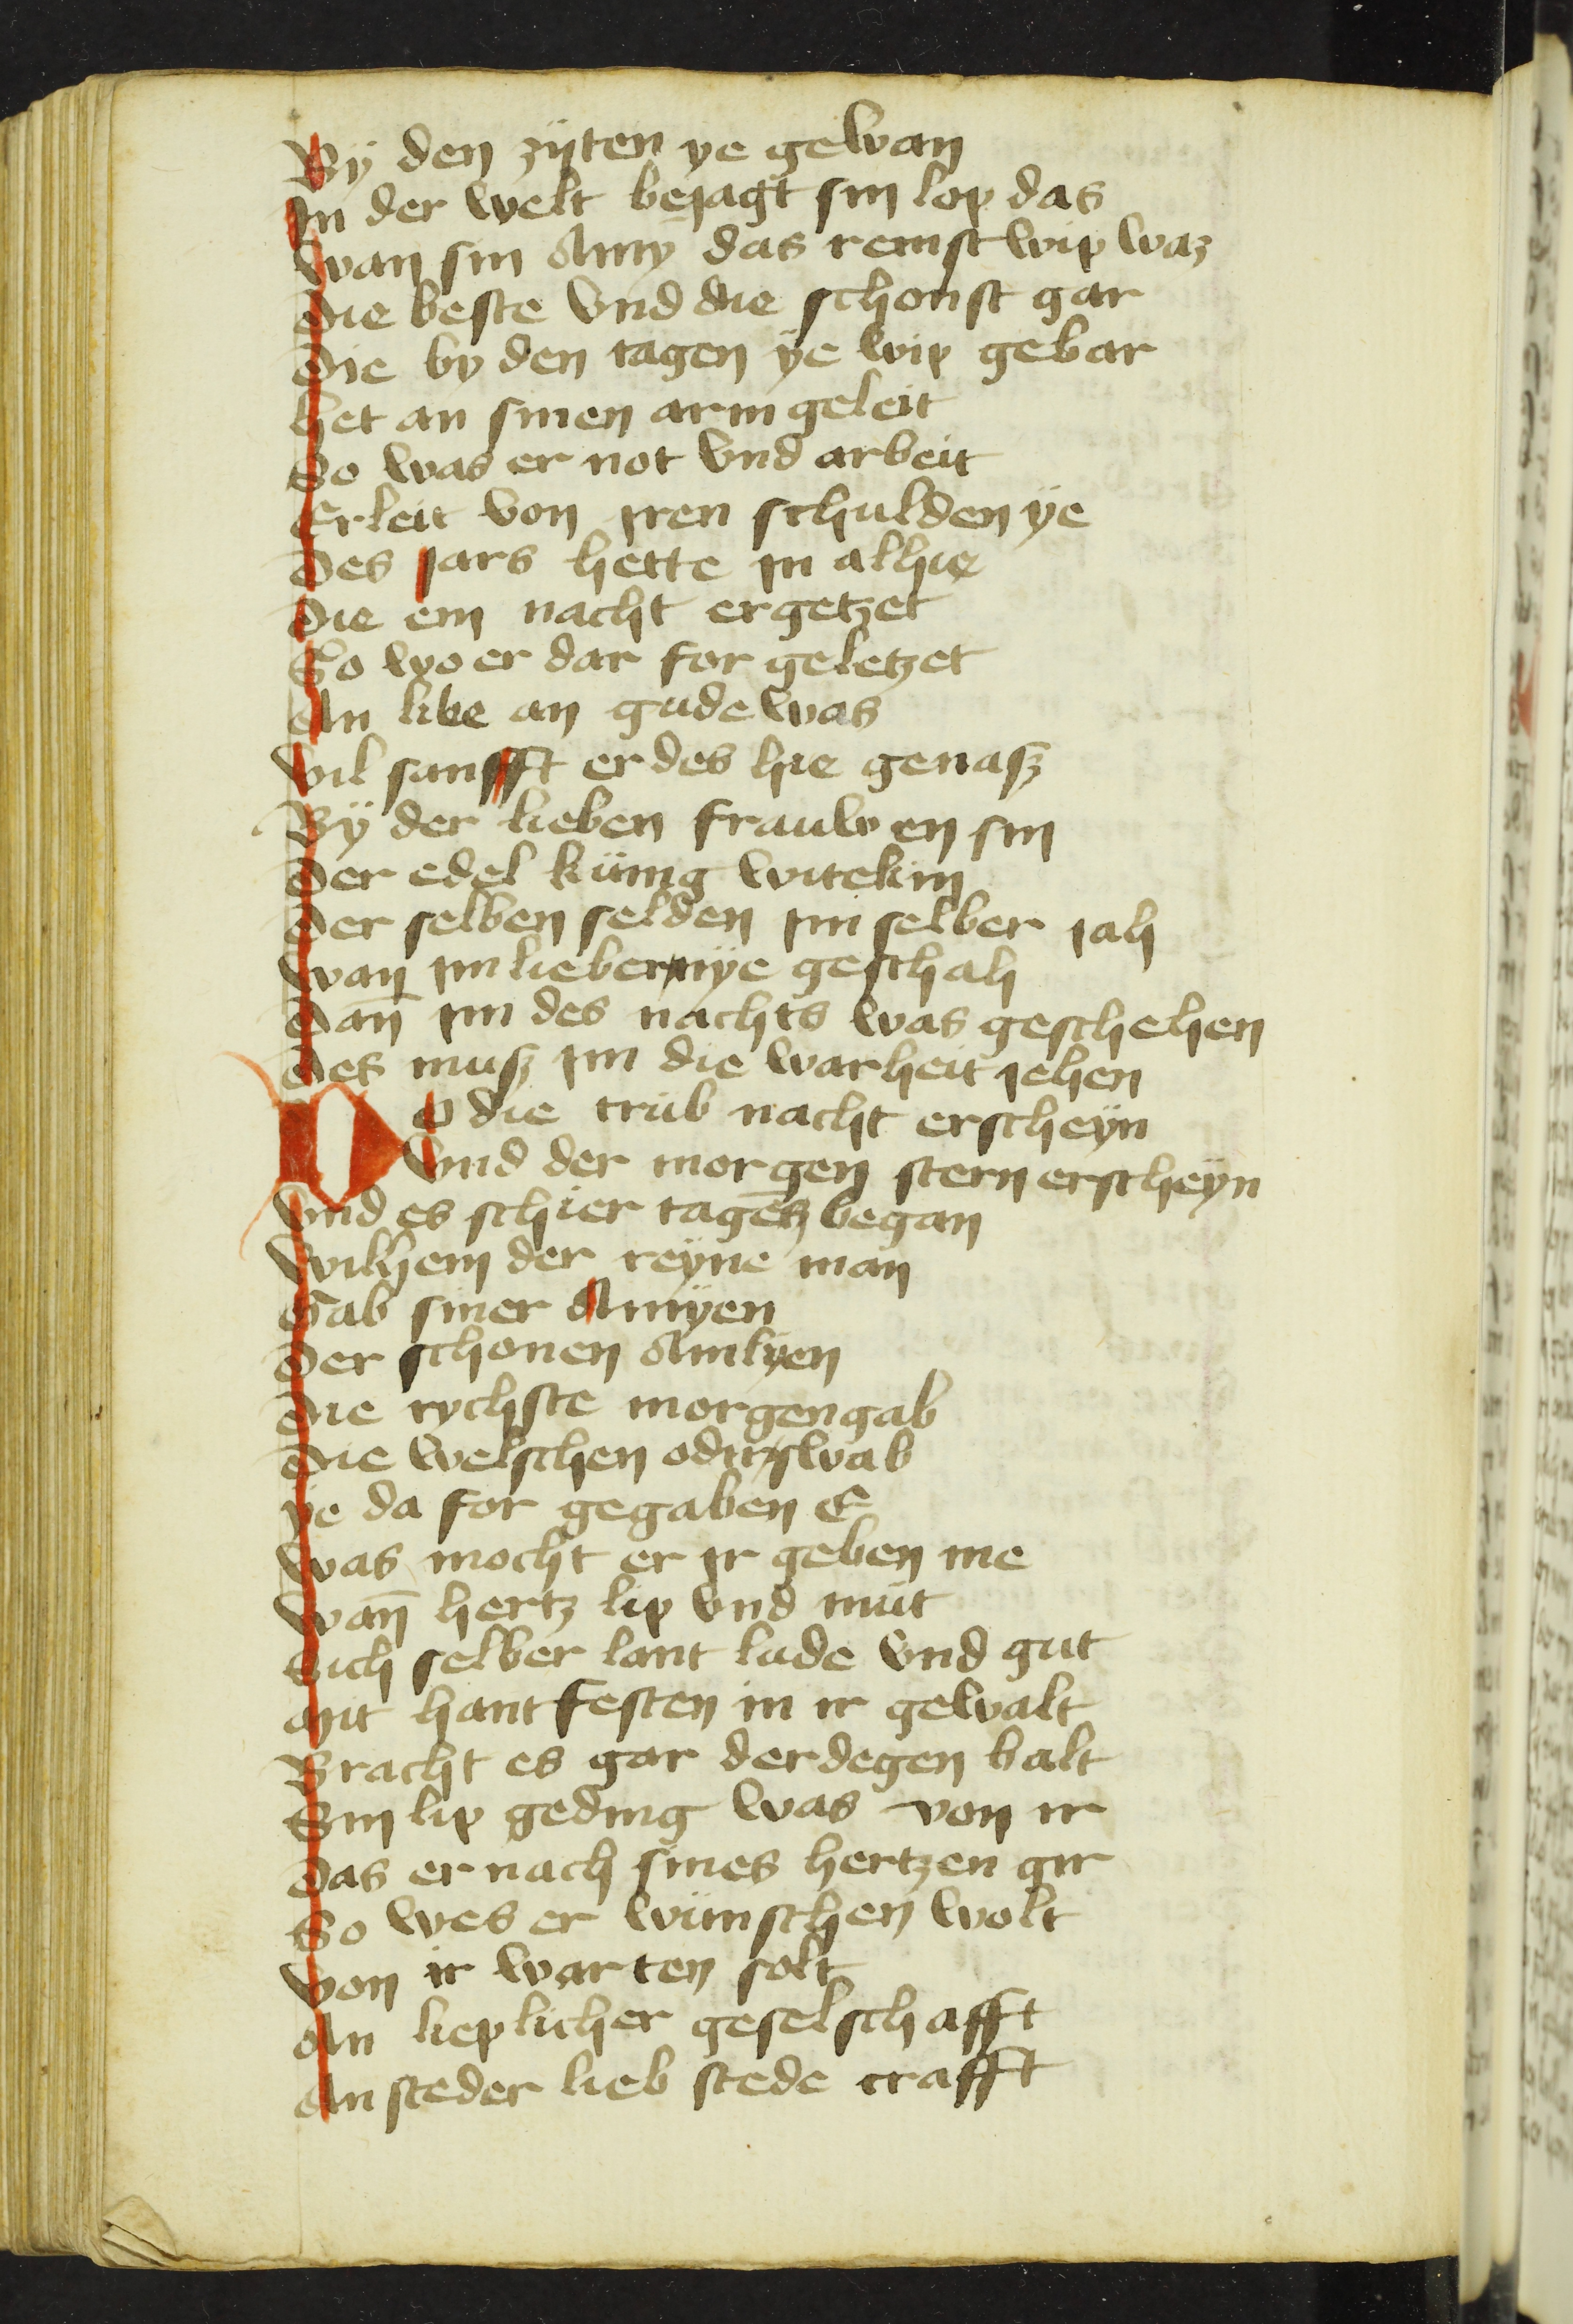 By den zyten ye gewan
In der welt bejagt sin lop das
Wan sin Amy das reinst wip waz
Die beste vnd die schonst gar
Die by den tagen ye wip gebar
Het an sinen arm geleit
So was er not vnd arbeit
Erleit von iren schulden ye
Des jars hette in alhie
Die ein nacht ergetzet
So wo er dar for geletzet
An libe an gude was
Vil sanfft er des hie genasz
By der lieben frauwen sin
Der edel künig witekin
Der selben selden im selber jah
Wan im lieber nye geschah
Dan̄ im des nachts was geschehen
Des musz im die warheit jehen
Do die trüb nacht erscheyn
Vnd der morgen stern erscheyn
Vnd es schier tagēs began
Wilhem der reyne man
Gab siner Amyen
Der schonen Amlyen
Die rychste morgengab
Die welschen oder swab
ye da for gegaben E
Was mocht er ir geben me
Wan̄ hertz lip vnd müt
Sich selber lant lude vnd gut
Mit hantfesten in ir gewalt
Bracht es gar der degen balt
Sin lip geding was von ir
Das er nach sines hertzen gir
So wes er wünschen wolt
Von ir warten solt
An lieplicher geselschafft
An steder lieb stede crafft